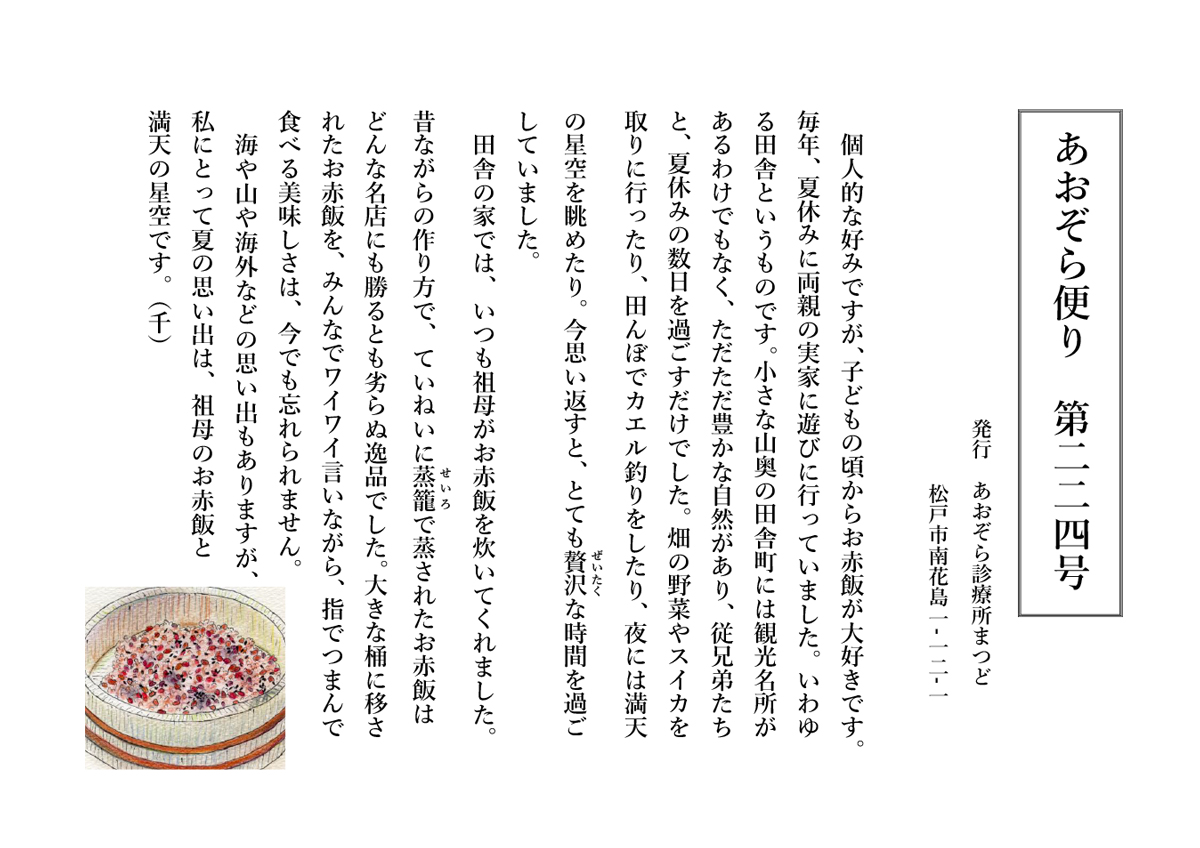 あおぞら便り　第二二四号
発行　あおぞら診療所まつど
松戸市南花島一-一二-一
個人的な好みですが、子どもの頃からお赤飯が大好きです。
毎年、夏休みに両親の実家に遊びに行っていました。いわゆ
る田舎というものです。小さな山奥の田舎町には観光名所が
あるわけでもなく、ただただ豊かな自然があり、従兄弟たち
と、夏休みの数日を過ごすだけでした。畑の野菜やスイカを
取りに行ったり、田んぼでカエル釣りをしたり、夜には満天
の星空を眺めたり。今思い返すと、とても贅沢（ぜいたく）な時間を過ご
していました。
田舎の家では、いつも祖母がお赤飯を炊いてくれました。
昔ながらの作り方で、ていねいに蒸籠（せいろ）で蒸されたお赤飯は
どんな名店にも勝るとも劣らぬ逸品でした。大きな桶に移さ
れたお赤飯を、みんなでワイワイ言いながら、指でつまんで
食べる美味しさは、今でも忘れられません。
海や山や海外などの思い出もありますが、
私にとって夏の思い出は、祖母のお赤飯と
満天の星空です。（千）